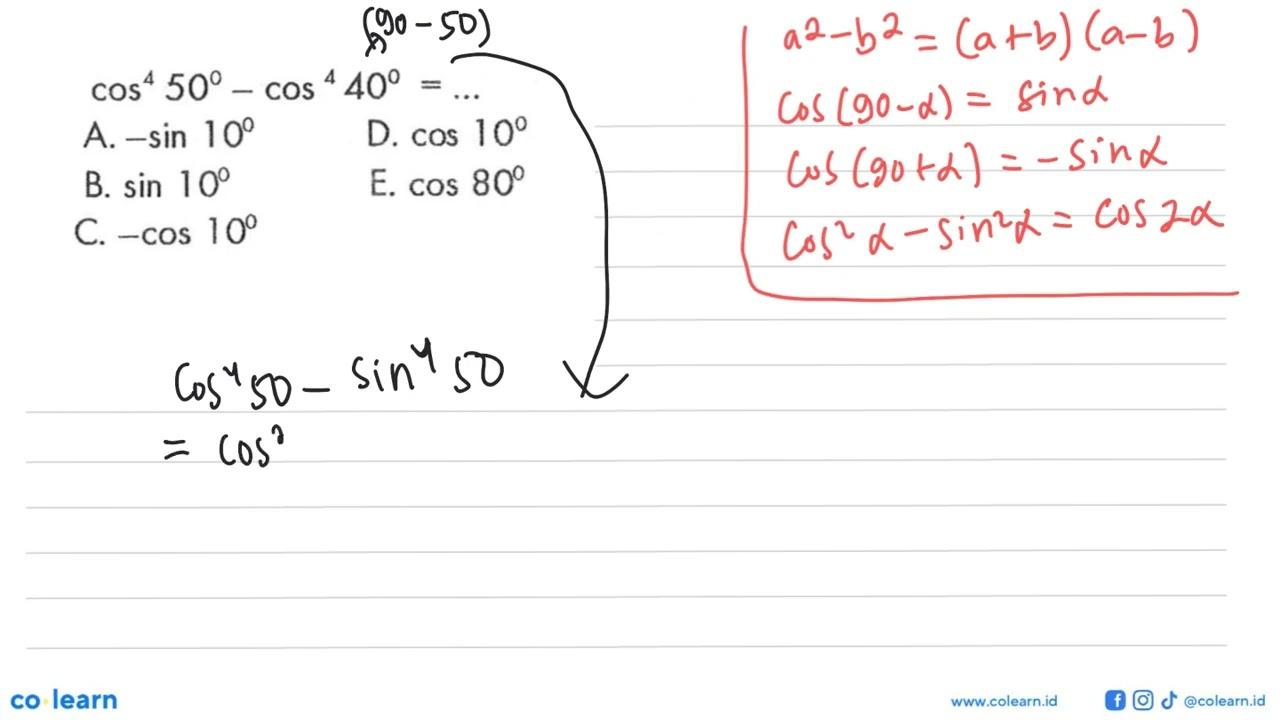 (90 - 50)
cos⁴ 50⁰ – cos ⁴ 40⁰ = ...
A. –sin 10⁰ D. cos 10⁰
B. sin 10⁰ E. cos 80⁰
C. –cos 10⁰
a² - b² = (a+b) (a-b)
cos (90-α) = sin α
cos (90+α) = - sin α
cos² α - sin² α = cos 2α
cos⁴ 50 - sin⁴ 50
= cos²
co·learn
www.colearn.id @colearn.id